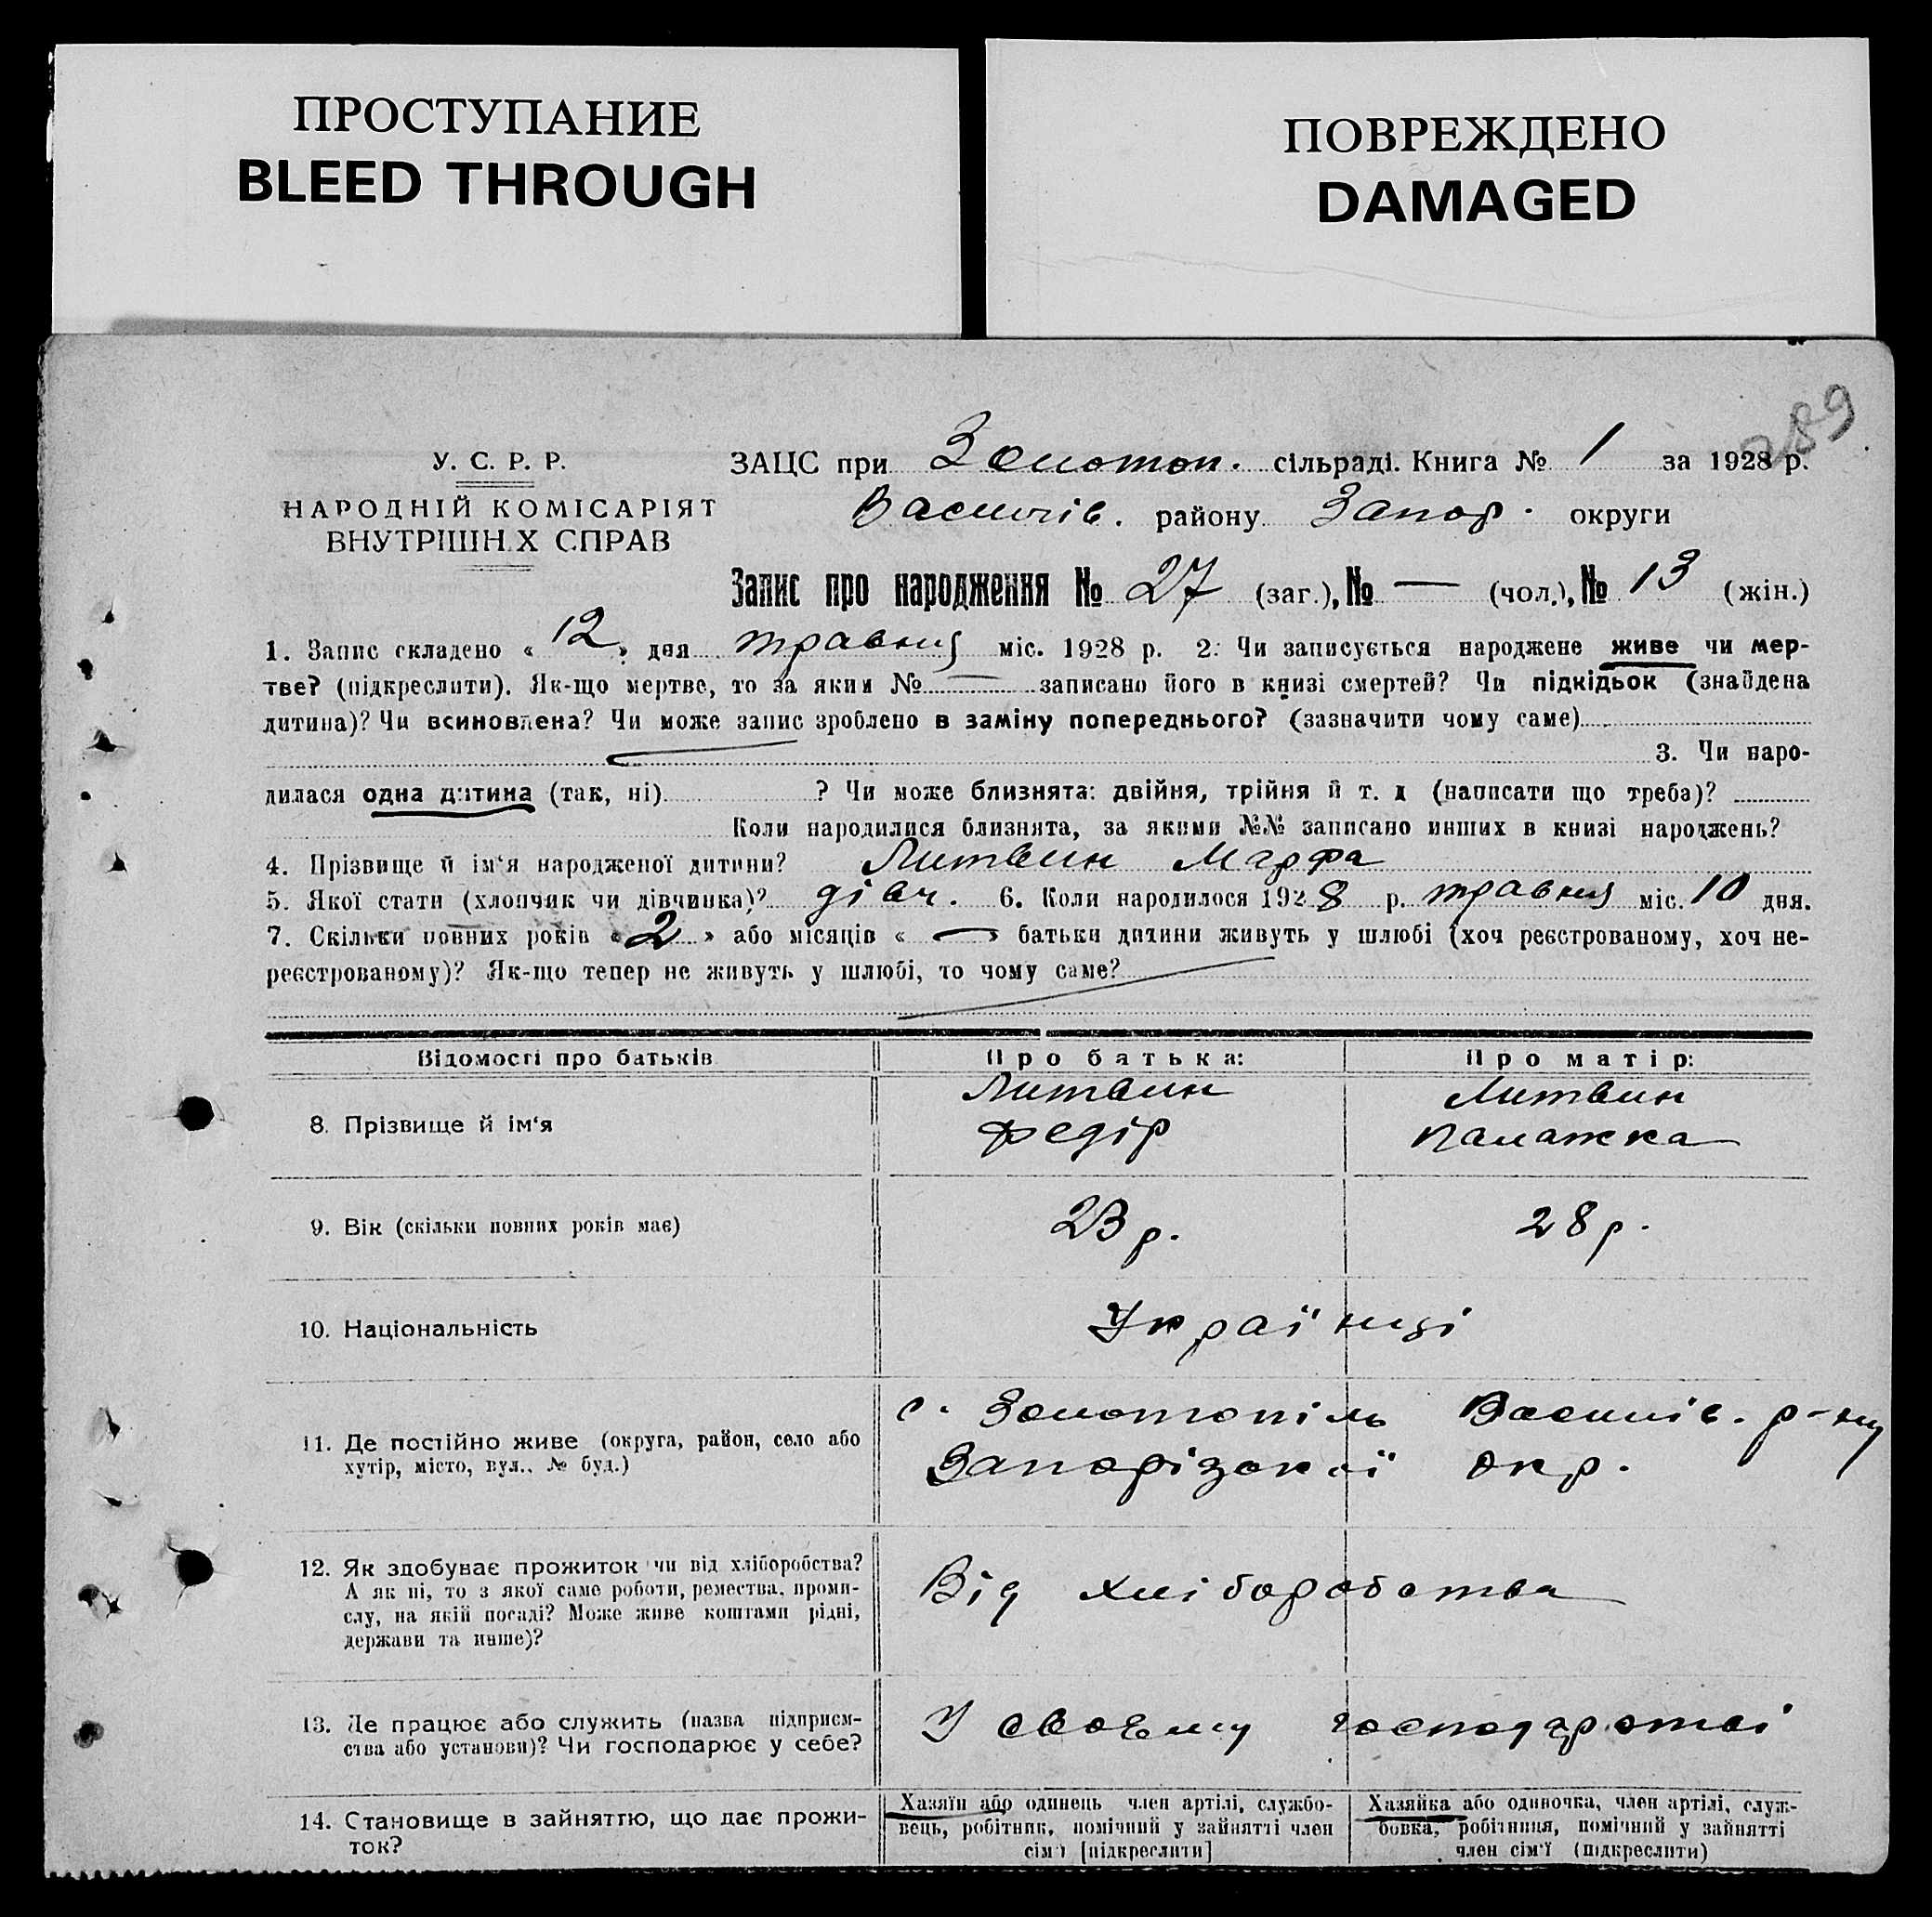 ПРОСТУПАНИЕ
BLEED THROUGH
ПОВРЕЖДЕНО
DAMAGED
289
У. С. Р. Р.
НАРОДНІЙ КОМІСАРІЯТ
ВНУТРІШН.Х СПРАВ
ЗАЦС при Золотоп. сільраді. Книга № 1 за 1928 р.
Василів. району Запор. округи
Запис про народження № 27 (заг.), № — (чол.), № 13 (жін.)
1. Запис складено « 12 » дня травня міс. 1928 р. 2. Чи записується народжене живе чи мер-
тве? (підкреслити). Як-що мертве, то за яким № — записано його в книзі смертей? Чи підкідьок (знайдена
дитина)? Чи всиновлена? Чи може запис зроблено в заміну попереднього? (зазначити чому саме)
3. Чи наро-
дилася одна дитина (так, ні) ? Чи може близнята: двійня, трійня й т. д (написати що треба)?
Коли народилися близнята, за якими №№ записано инших в книзі народжень?
4. Прізвище й ім'я народженої дитини? Литвин Марфа
5. Якої стати (хлопчик чи дівчинка)? дівч. 6. Коли народилося 1928 р. травня міс. 10 дня.
7. Скільки повних років « 2 » або місяців « — » батьки дитини живуть у шлюбі (хоч реєстрованому, хоч не-
реєстрованому)? Як-що тепер не живуть у шлюбі, то чому саме?
Відомості про батьків Про батька: Про матір:
8. Прізвище й ім'я Литвин Федір Литвин Палажка
9. Вік (скільки повних років має) 23 р. 28 р.
10. Національність Українці
11. Де постійно живе (округа, район, село або
хутір, місто, вул., № буд.)
с. Золотопіль Василів. р-ну
Запорізької окр.
12. Як здобуває прожиток чи від хліборобства?
А як ні, то з якої саме роботи, ремества, проми-
слу, на якій посаді? Може живе коштами рідні,
держави та инше)?
Від хліборобства
13. Де працює або служить (назва підприєм-
ства або установи)? Чи господарює у себе?
У своєму господарстві
14. Становище в зайняттю, що дає прожи-
ток?
Хазяїн або одинець член артілі, службо-
вець, робітник, помічний у зайнятті член
сім'ї [підкреслити]
Хазяйка або одиночка, член артілі, служ-
бовка, робітниця, помічний у зайнятті
член сім'ї (підкреслити)